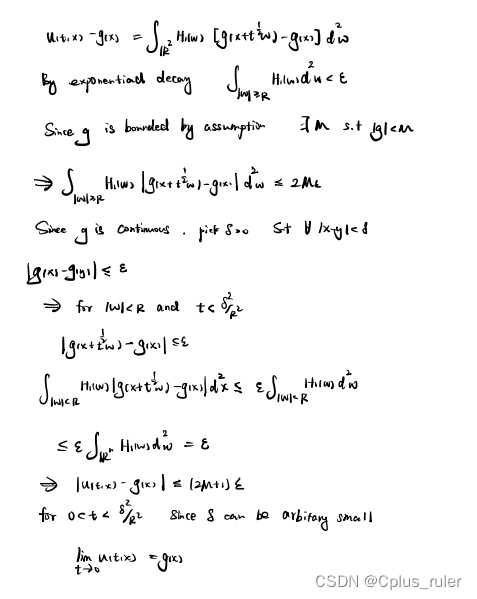 u(t,x) - g(x) = ∫_{ℝ²} H₁(w) [g(x+t^{1/2}w) - g(x)] d²w
By exponential decay ∫_{|w|≥R} H₁(w) d²w < ε
Since g is bounded by assumption ∃ M s.t |g| < M
⇒ ∫_{|w|≥R} H₁(w) |g(x+t^{1/2}w) - g(x)| d²w ≤ 2Mε
Since g is continuous . pick δ>0 st ∀ |x-y|<δ
|g(x) - g(y)| ≤ ε
⇒ for |w|<R and t< δ²/R²
|g(x+t^{1/2}w) - g(x)| ≤ ε
∫_{|w|<R} H₁(w) |g(x+t^{1/2}w) - g(x)| d²x ≤ ε ∫_{|w|<R} H₁(w) d²w
≤ ε ∫_{ℝⁿ} H₁(w) d²w = ε
⇒ |u(t,x) - g(x)| ≤ (2M+1) ε
for 0<t< δ²/R² Since δ can be arbitary small
lim_{t→0} u(t,x) = g(x)
CSDN @Cplus_ruler